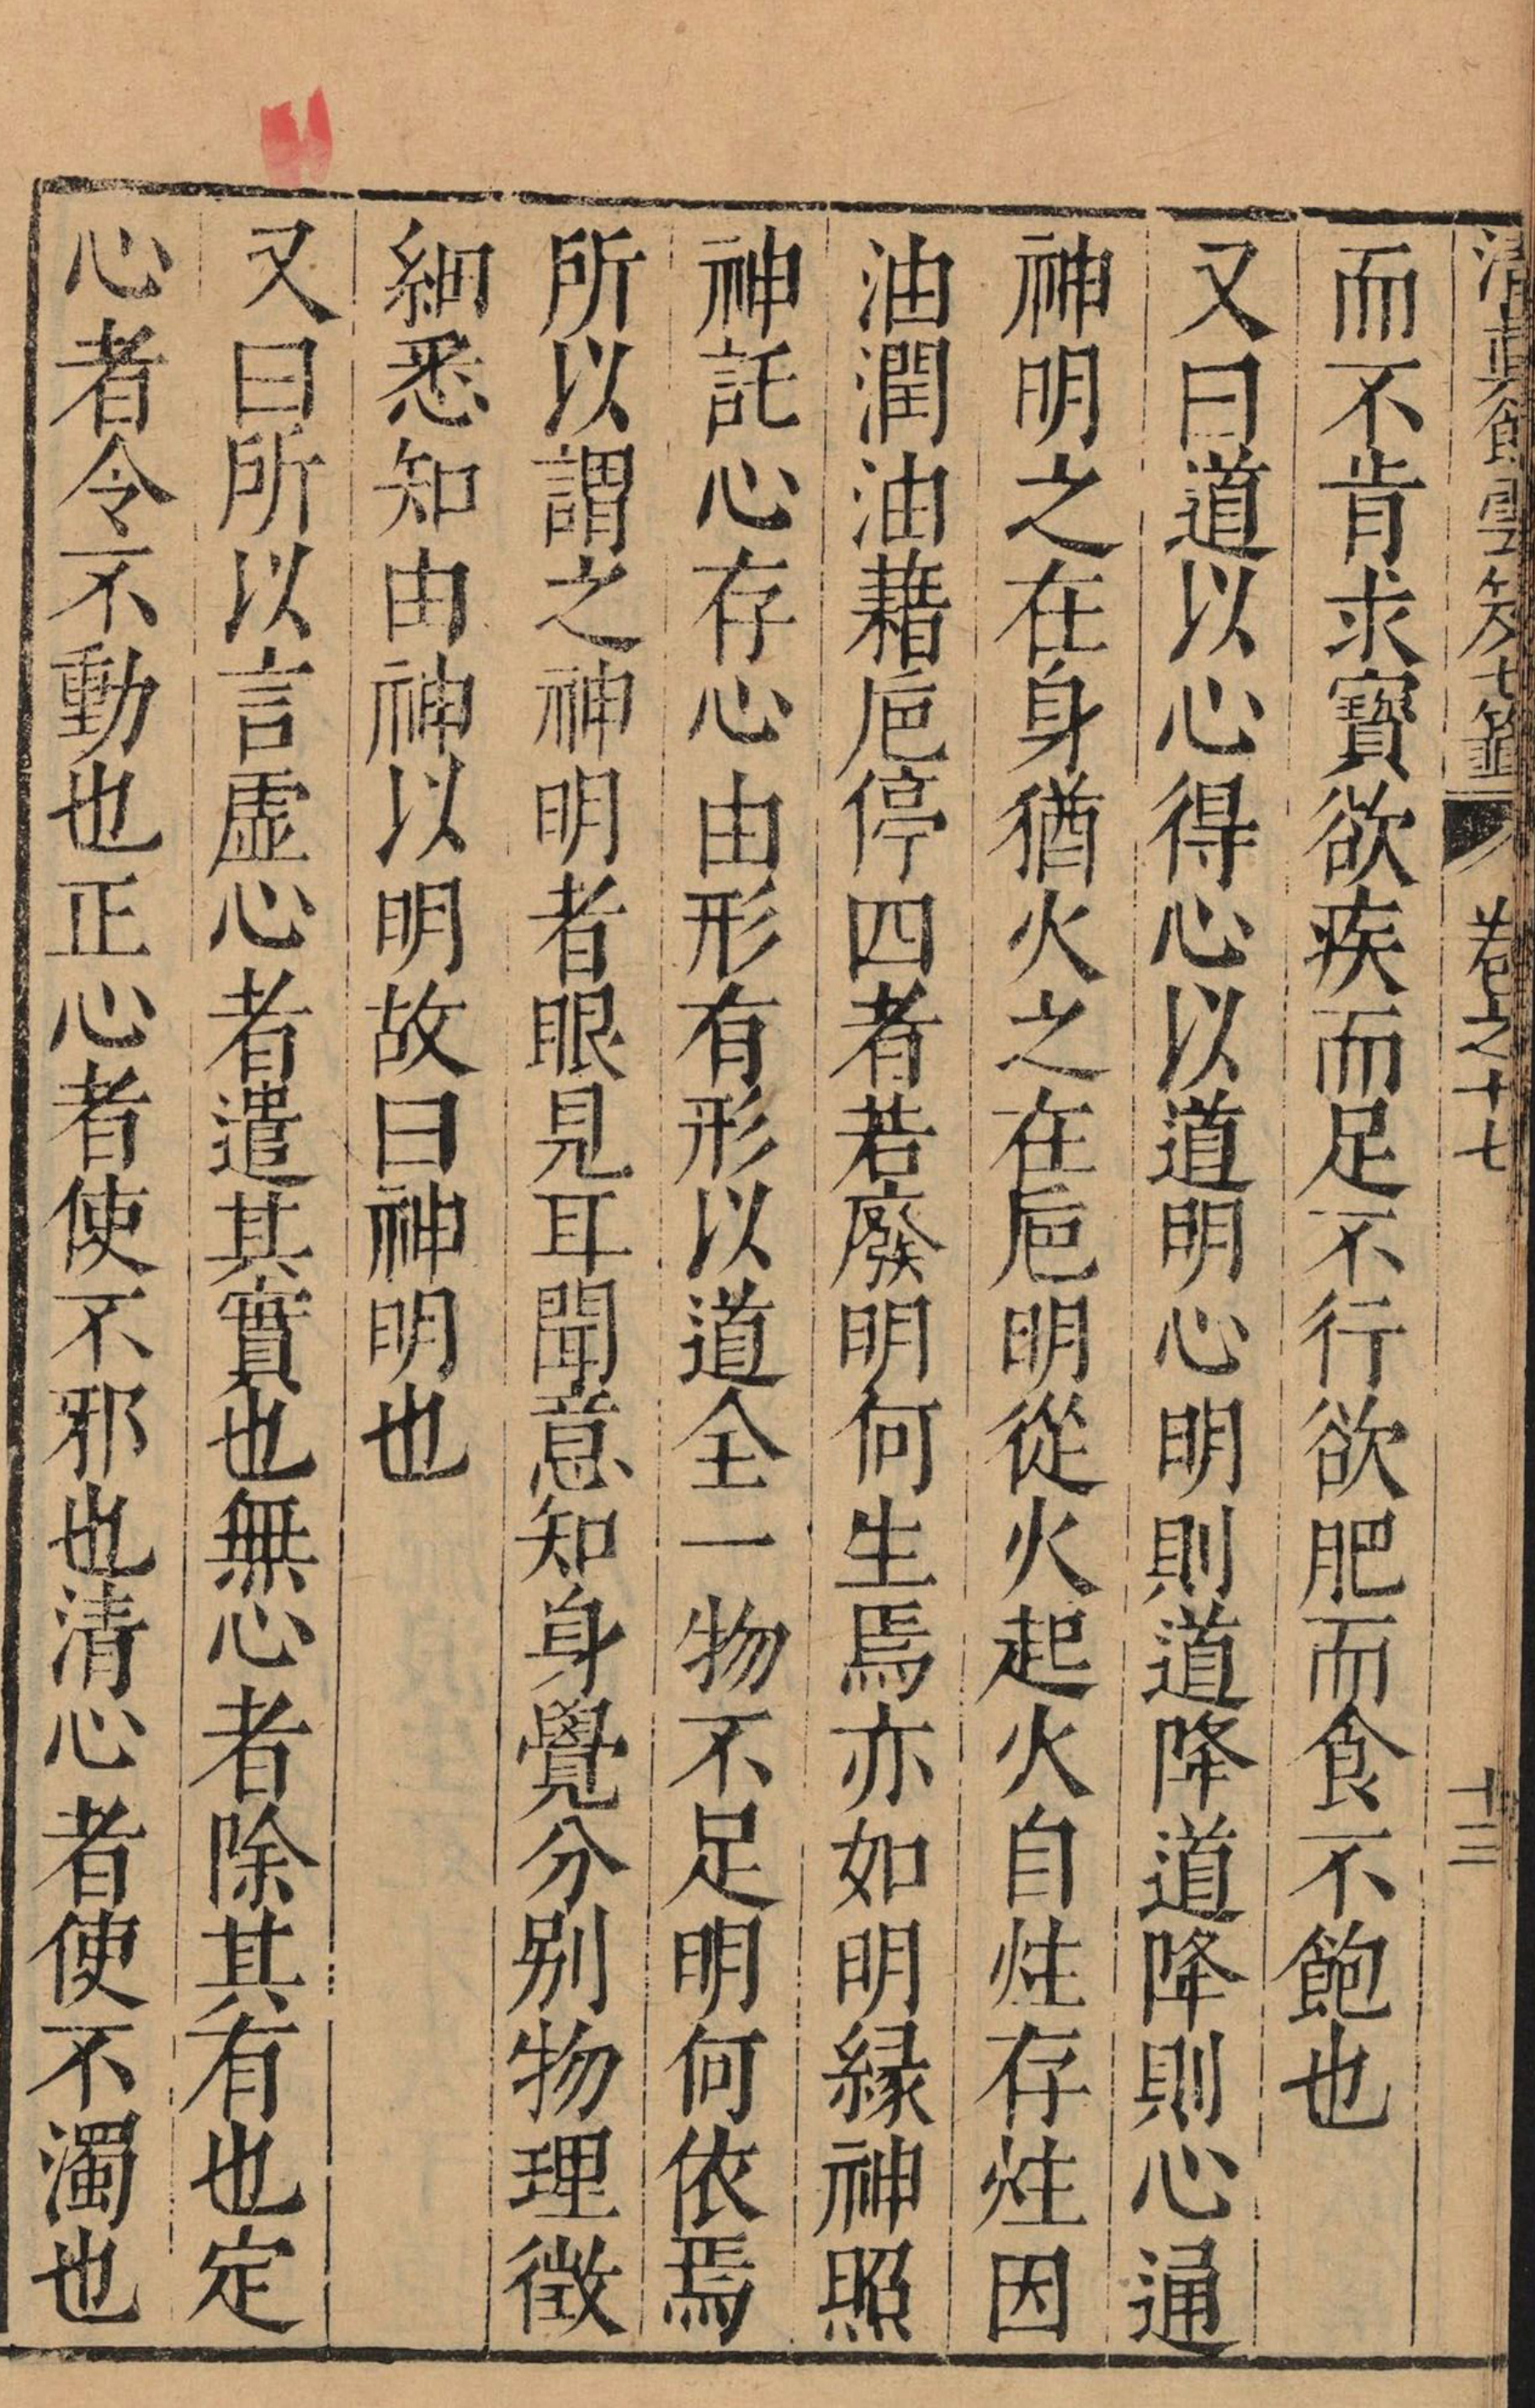 清真館雲笈七籤 卷之十七 十二
而不肯求寶欲疾而足不行欲肥而食不飽也
又曰道以心得心以道明心明則道降道降則心通
神明之在身猶火之在巵明從火起火自炷存炷因
油潤油藉巵停四者若廢明何生焉亦如明縁神照
神託心存心由形有形以道全一物不足明何依焉
所以謂之神明者眼見耳聞意知身覺分別物理微
細悉知由神以明故曰神明也
又曰所以言虛心者遣其實也無心者除其有也定
心者令不動也正心者使不邪也清心者使不濁也